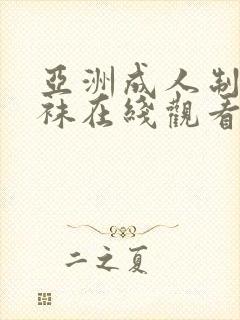 亞洲成人制
袜在綫觀看
二之夏